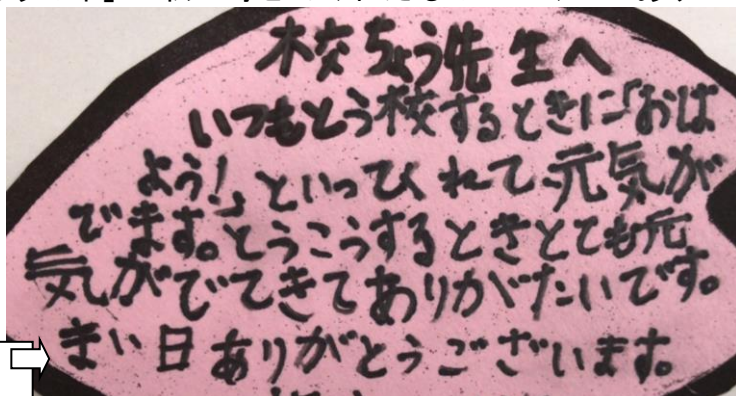 校ちょう先生へ
いつもとう校するときに「おば
よう!」といってくれて元気が
でます。とうこうするときとても元
気がでてきてありがたいです。
まい日ありがとうございます。